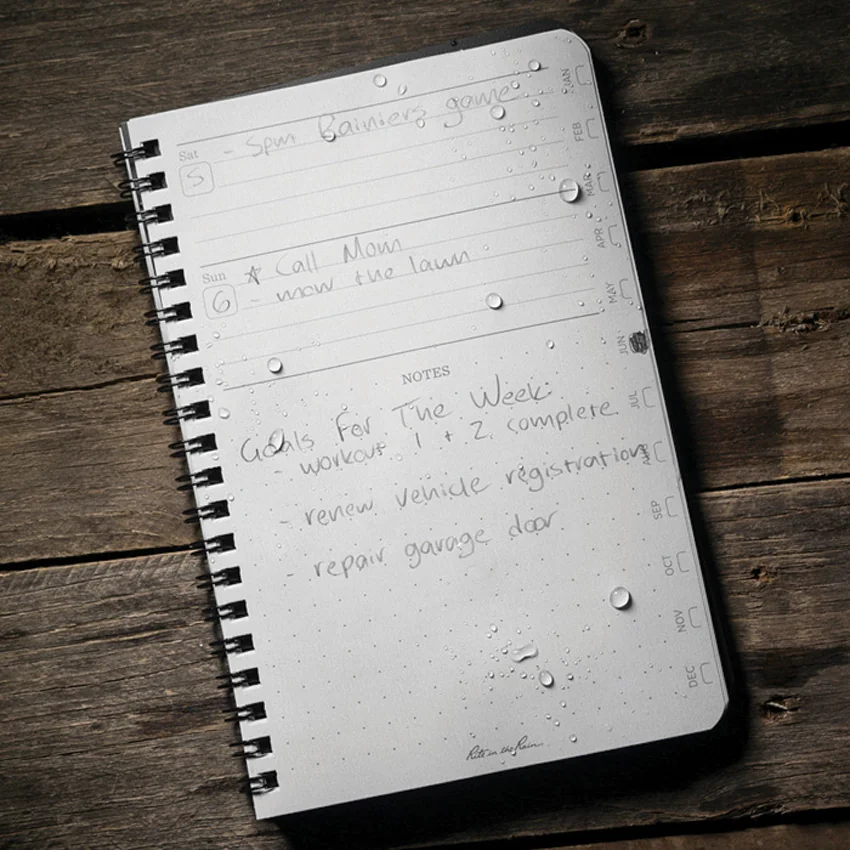 Sat
5
- 5pm Rainiers game
Sun
6
☆ Call Mom
- mow the lawn
NOTES
Goals For The Week:
- workout 1 + 2 complete
- renew vehicle registration
- repair garage door
JAN
FEB
MAR
APR
MAY
JUN
JUL
AUG
SEP
OCT
NOV
DEC
Rite in the Rain